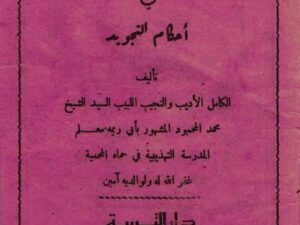 في
أحكام التجويد
تأليف
الكامل الأديب والنجيب اللبيب السيد الشيخ
محمد المحمود المشهور بأبي ريمه معلم
المدرسة التهذيبية في حماه المحمية
غفر الله له ولوالديه آمين